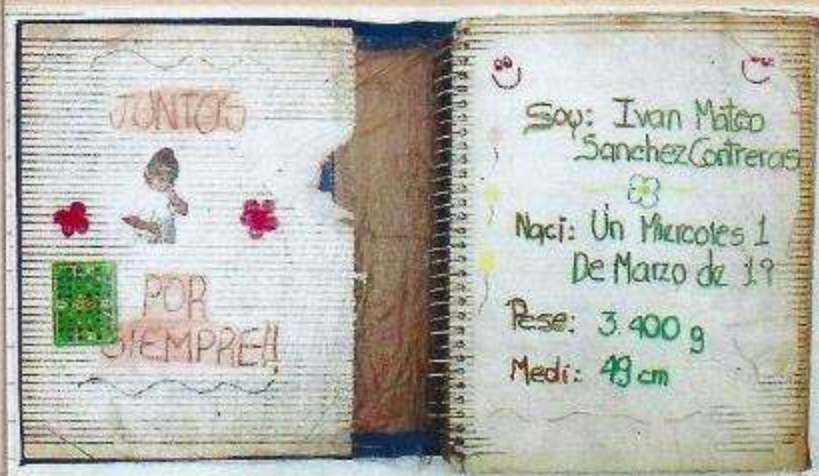 JUNTOS
POR
SIEMPRE!!
Soy: Ivan Mateo
Sanchez Contreras
Naci: Un Miercoles 1
De Marzo de 19
Pese: 3.400 g
Medi: 49 cm